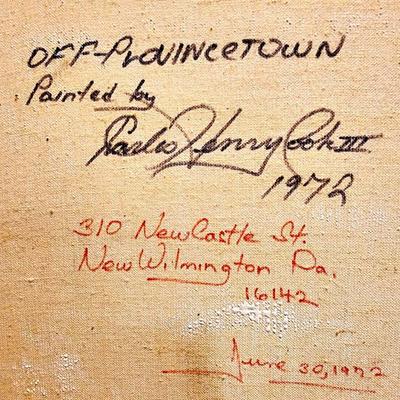 OFF-PROVINCETOWN
Painted by
Charles Henry Cook III
1972
310 NewCastle St.
New Wilmington Pa.
16142
June 30, 1972